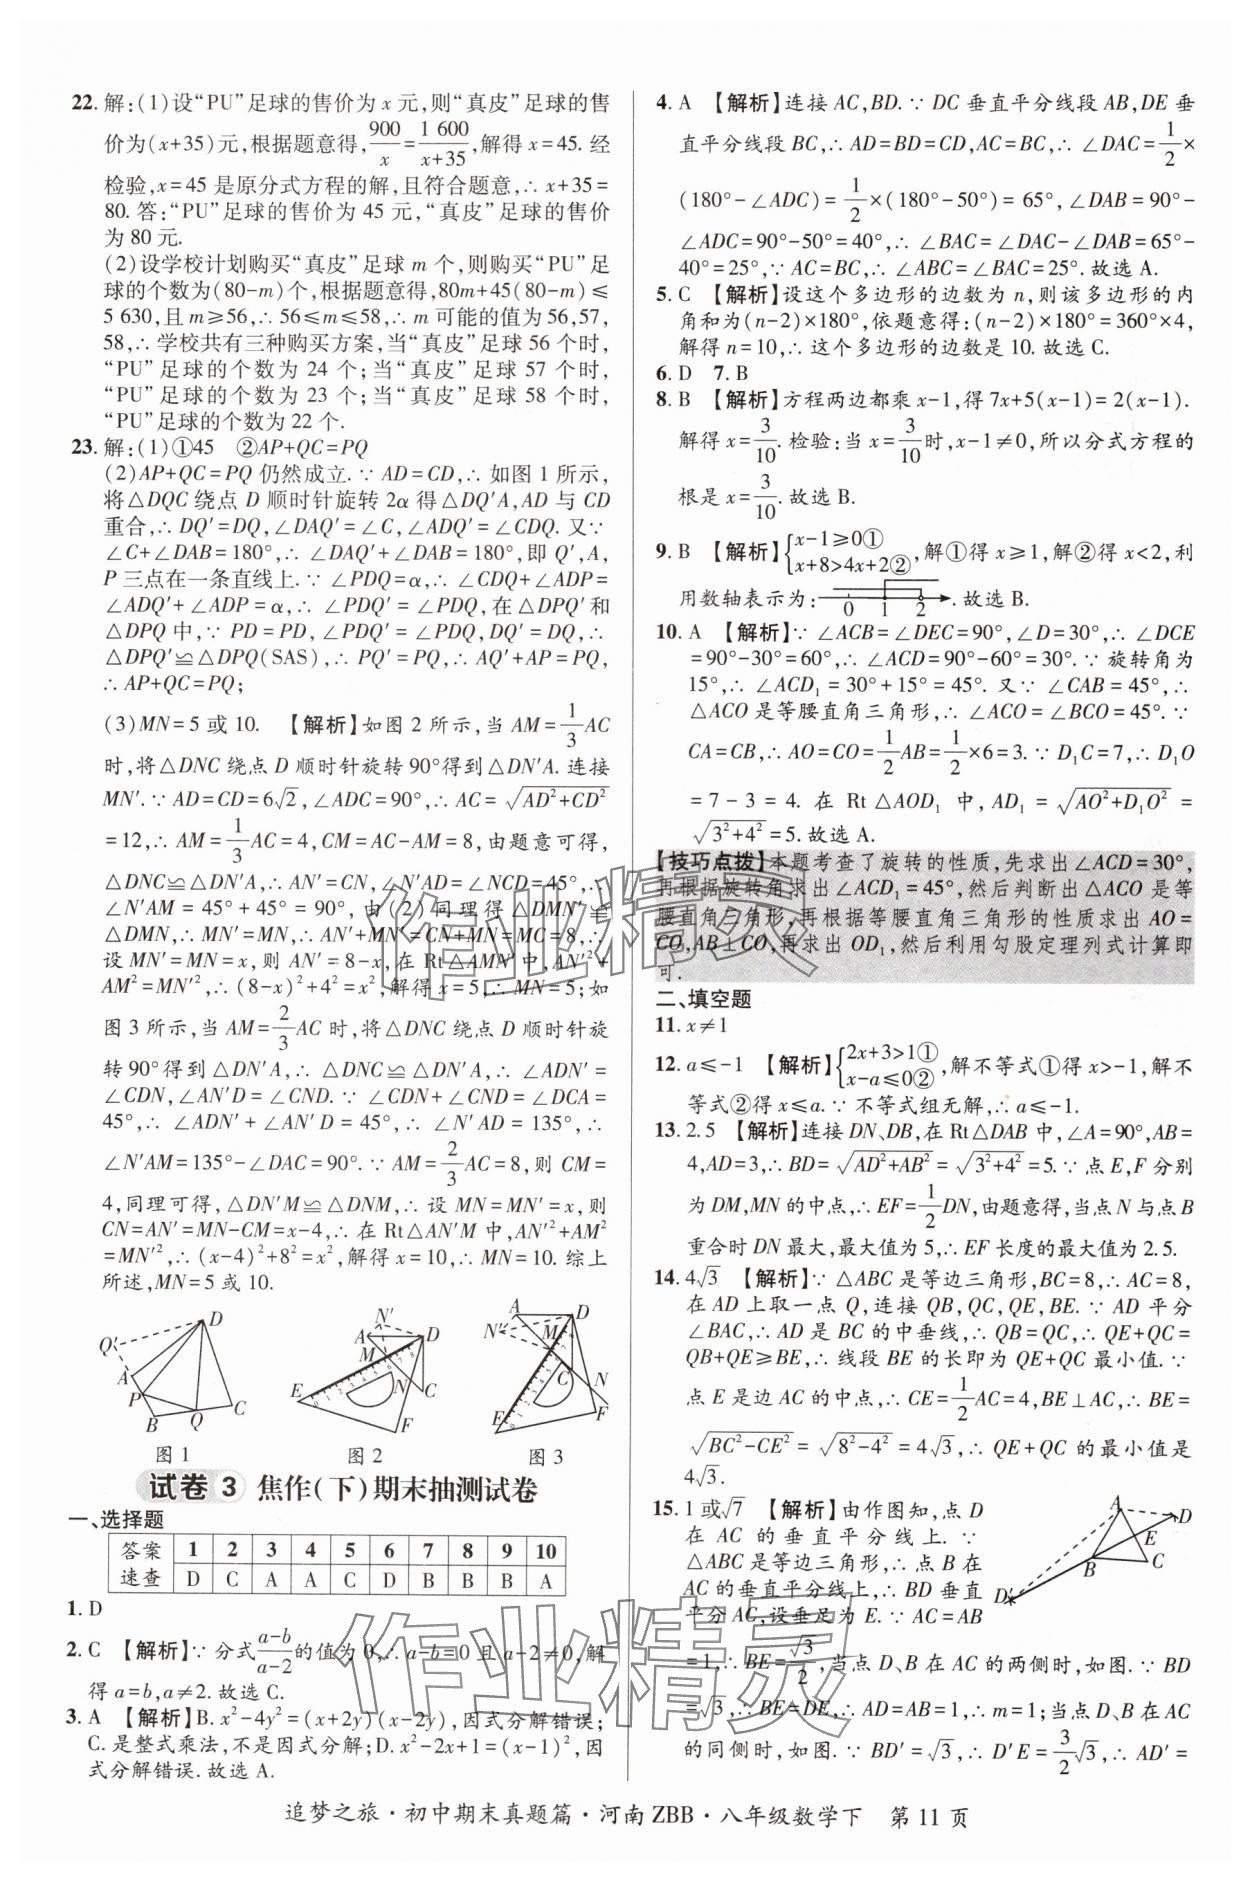 22. 解:(1)设“PU”足球的售价为 x 元,则“真皮”足球的售
价为(x+35)元,根据题意得,900/x=1 600/(x+35),解得 x=45. 经
检验,x=45 是原分式方程的解,且符合题意,∴ x+35=
80. 答:“PU”足球的售价为 45 元,“真皮”足球的售价
为 80 元.
(2)设学校计划购买“真皮”足球 m 个,则购买“PU”足
球的个数为(80-m)个,根据题意得,80m+45(80-m)≤
5 630,且 m≥56,∴ 56≤m≤58,∴ m 可能的值为 56,57,
58,∴ 学校共有三种购买方案,当“真皮”足球 56 个时,
“PU”足球的个数为 24 个;当“真皮”足球 57 个时,
“PU”足球的个数为 23 个;当“真皮”足球 58 个时,
“PU”足球的个数为 22 个.
23. 解:(1)①45 ②AP+QC=PQ
(2)AP+QC=PQ 仍然成立. ∵ AD=CD,∴ 如图 1 所示,
将△DQC 绕点 D 顺时针旋转 2α 得△DQ′A,AD 与 CD
重合,∴ DQ′=DQ,∠DAQ′=∠C,∠ADQ′=∠CDQ. 又∵
∠C+∠DAB=180°,∴ ∠DAQ′+∠DAB=180°,即 Q′,A,
P 三点在一条直线上. ∵ ∠PDQ=α,∴ ∠CDQ+∠ADP=
∠ADQ′+∠ADP=α,∴ ∠PDQ′=∠PDQ,在△DPQ′和
△DPQ 中,∵ PD=PD,∠PDQ′=∠PDQ,DQ′=DQ,∴
△DPQ′≌△DPQ(SAS),∴ PQ′=PQ,∴ AQ′+AP=PQ,
∴ AP+QC=PQ;
(3)MN=5 或 10. 【解析】如图 2 所示,当 AM=1/3 AC
时,将△DNC 绕点 D 顺时针旋转 90°得到△DN′A. 连接
MN′. ∵ AD=CD=6√2,∠ADC=90°,∴ AC=√(AD²+CD²)
=12,∴ AM=1/3 AC=4,CM=AC-AM=8,由题意可得,
△DNC≌△DN′A,∴ AN′=CN,∠N′AD=∠NCD=45°,∴
∠N′AM=45°+45°=90°,由(2)同理得△DMN′≌
△DMN,∴ MN′=MN,∴ AN′+MN=CN+MN=MC=8,∴
设 MN′=MN=x,则 AN′=8-x,在 Rt△AMN′中,AN′²+
AM²=MN′²,∴ (8-x)²+4²=x²,解得 x=5,∴ MN=5;如
图 3 所示,当 AM=2/3 AC 时,将△DNC 绕点 D 顺时针旋
转 90°得到△DN′A,∴ △DNC≌△DN′A,∴ ∠ADN′=
∠CDN,∠AN′D=∠CND. ∵ ∠CDN+∠CND=∠DCA=
45°,∴ ∠ADN′+∠AN′D=45°,∴ ∠N′AD=135°,∴
∠N′AM=135°-∠DAC=90°. ∵ AM=2/3 AC=8,则 CM=
4,同理可得,△DN′M≌△DNM,∴ 设 MN=MN′=x,则
CN=AN′=MN-CM=x-4,∴ 在 Rt△AN′M 中,AN′²+AM²
=MN′²,∴ (x-4)²+8²=x²,解得 x=10,∴ MN=10. 综上
所述,MN=5 或 10.
Q′ D A P B Q C
N′ A D M N C E F
A D N′ M C N E F
图 1 图 2 图 3
试卷 3 焦作(下)期末抽测试卷
一、选择题
答案 1 2 3 4 5 6 7 8 9 10
速查 D C A A C D B B B A
1. D
2. C 【解析】∵ 分式(a-b)/(a-2)的值为 0,∴ a-b=0 且 a-2≠0,解
得 a=b,a≠2. 故选 C.
3. A 【解析】B. x²-4y²=(x+2y)(x-2y),因式分解错误;
C. 是整式乘法,不是因式分解;D. x²-2x+1=(x-1)²,因
式分解错误. 故选 A.
4. A 【解析】连接 AC,BD. ∵ DC 垂直平分线段 AB,DE 垂
直平分线段 BC,∴ AD=BD=CD,AC=BC,∴ ∠DAC=1/2×
(180°-∠ADC)=1/2×(180°-50°)=65°,∠DAB=90°-
∠ADC=90°-50°=40°,∴ ∠BAC=∠DAC-∠DAB=65°-
40°=25°,∵ AC=BC,∴ ∠ABC=∠BAC=25°. 故选 A.
5. C 【解析】设这个多边形的边数为 n,则该多边形的内
角和为(n-2)×180°,依题意得:(n-2)×180°=360°×4,
解得 n=10,∴ 这个多边形的边数是 10. 故选 C.
6. D 7. B
8. B 【解析】方程两边都乘 x-1,得 7x+5(x-1)=2(x-1).
解得 x=3/10. 检验:当 x=3/10时,x-1≠0,所以分式方程的
根是 x=3/10. 故选 B.
9. B 【解析】{x-1≥0① x+8>4x+2②,解①得 x≥1,解②得 x<2,利
用数轴表示为: 0 1 2 . 故选 B.
10. A 【解析】∵ ∠ACB=∠DEC=90°,∠D=30°,∴ ∠DCE
=90°-30°=60°,∴ ∠ACD=90°-60°=30°. ∵ 旋转角为
15°,∴ ∠ACD₁=30°+15°=45°. 又∵ ∠CAB=45°,∴
△ACO 是等腰直角三角形,∴ ∠ACO=∠BCO=45°. ∵
CA=CB,∴ AO=CO=1/2 AB=1/2×6=3. ∵ D₁C=7,∴ D₁O
=7-3=4. 在 Rt△AOD₁ 中,AD₁=√(AO²+D₁O²)=
√(3²+4²)=5. 故选 A.
【技巧点拨】本题考查了旋转的性质,先求出∠ACD=30°,
再根据旋转角求出∠ACD₁=45°,然后判断出△ACO 是等
腰直角三角形,再根据等腰直角三角形的性质求出 AO=
CO,AB⊥CO,再求出 OD₁,然后利用勾股定理列式计算即
可.
二、填空题
11. x≠1
12. a≤-1 【解析】{2x+3>1① x-a≤0②,解不等式①得 x>-1,解不
等式②得 x≤a. ∵ 不等式组无解,∴ a≤-1.
13. 2.5 【解析】连接 DN、DB,在 Rt△DAB 中,∠A=90°,AB=
4,AD=3,∴ BD=√(AD²+AB²)=√(3²+4²)=5. ∵ 点 E,F 分别
为 DM,MN 的中点,∴ EF=1/2 DN,由题意得,当点 N 与点 B
重合时 DN 最大,最大值为 5,∴ EF 长度的最大值为 2.5.
14. 4√3 【解析】∵ △ABC 是等边三角形,BC=8,∴ AC=8,
在 AD 上取一点 Q,连接 QB,QC,QE,BE. ∵ AD 平分
∠BAC,∴ AD 是 BC 的中垂线,∴ QB=QC,∴ QE+QC=
QB+QE≥BE,∴ 线段 BE 的长即为 QE+QC 最小值. ∵
点 E 是边 AC 的中点,∴ CE=1/2 AC=4,BE⊥AC,∴ BE=
√(BC²-CE²)=√(8²-4²)=4√3,∴ QE+QC 的最小值是
4√3.
15. 1 或√7 【解析】由作图知,点 D
在 AC 的垂直平分线上. ∵
△ABC 是等边三角形,∴ 点 B 在
AC 的垂直平分线上,∴ BD 垂直
平分 AC,设垂足为 E. ∵ AC=AB
=1,∴ BE=√3/2,当点 D、B 在 AC 的两侧时,如图. ∵ BD
=√3,∴ BE=DE,∴ AD=AB=1,∴ m=1;当点 D、B 在 AC
的同侧时,如图. ∵ BD′=√3,∴ D′E=3/2√3,∴ AD′=
A D E B C D′
作业精灵
作业精灵
追梦之旅·初中期末真题篇·河南 ZBB·八年级数学下 第 11 页